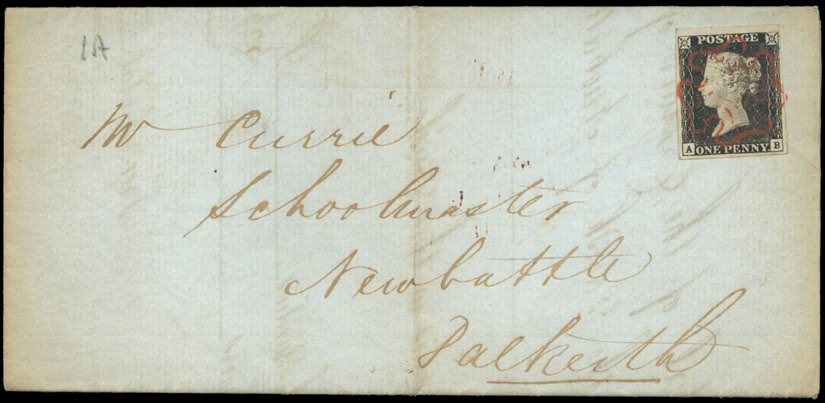 1A
POSTAGE
ONE PENNY
A B
Mr Currie
Schoolmaster
Newbattle
Dalkeith